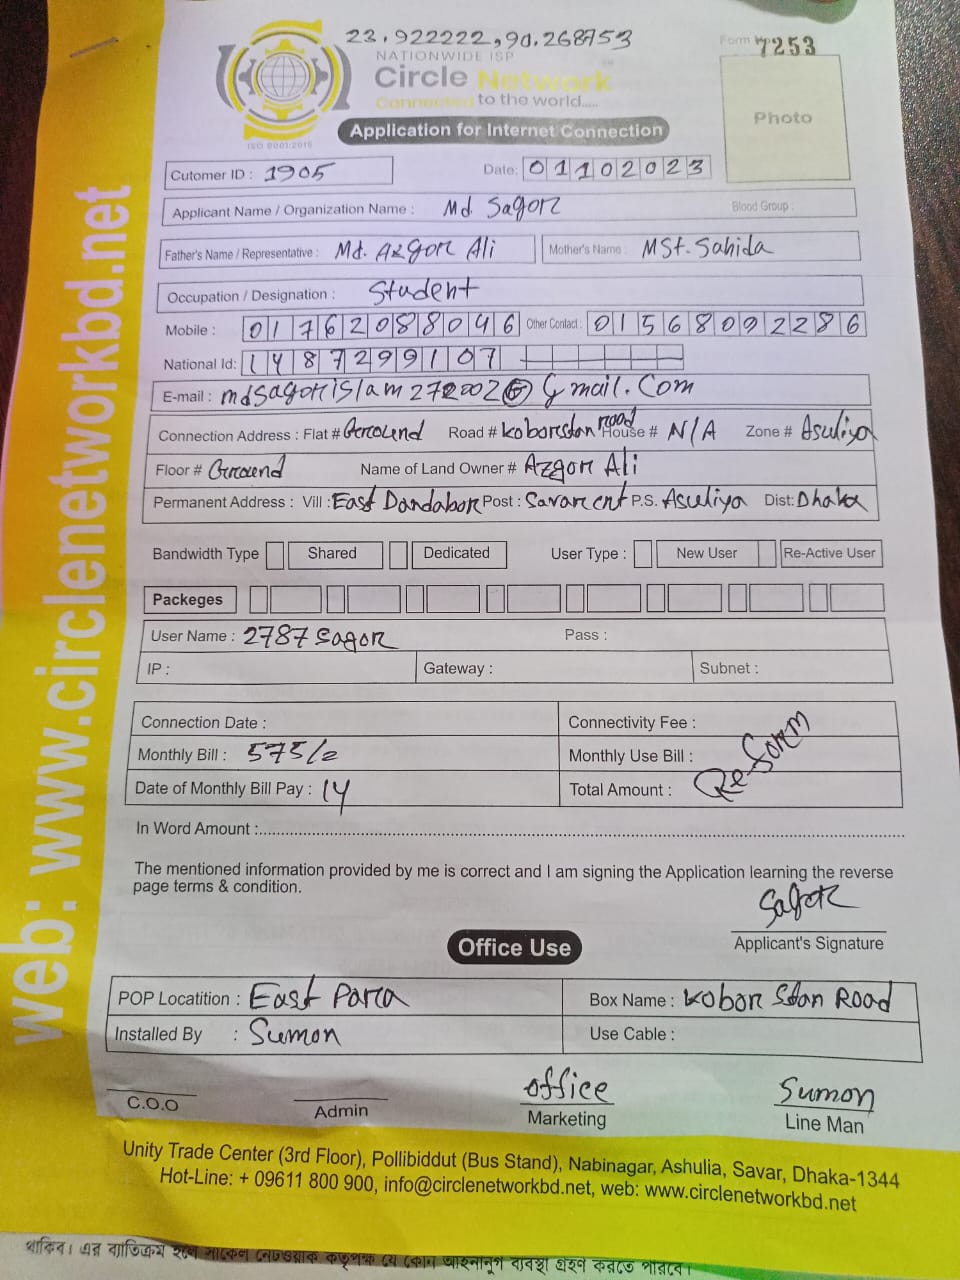 23.922222,90.268753
Form No 7253
NATIONWIDE ISP
Circle Network
Connected to the world.....
ISO 9001:2015
Photo
Application for Internet Connection
Cutomer ID : 1905 Date: 01102023
Applicant Name / Organization Name : Md. Sagor Blood Group :
Father's Name / Representative : Md. Azgor Ali Mother's Name : MSt. Sahida
Occupation / Designation : Student
Mobile : 01762088046 Other Contact : 01568092286
National Id: 1487299107
E-mail : mdsagorislam272002@gmail.com
Connection Address : Flat # Ground Road # koborstan road House # N/A Zone # Asuliya
Floor # Ground Name of Land Owner # Azgor Ali
Permanent Address : Vill : East Dandabor Post : Savar cnt P.S. Asuliya Dist: Dhaka
Bandwidth Type Shared Dedicated User Type : New User Re-Active User
Packeges
User Name : 2787sagor Pass :
IP : Gateway : Subnet :
Connection Date : Connectivity Fee :
Monthly Bill : 575/= Monthly Use Bill :
Date of Monthly Bill Pay : 14 Total Amount :
Re-Form
In Word Amount :
The mentioned information provided by me is correct and I am signing the Application learning the reverse
page terms & condition.
Sagor
Applicant's Signature
Office Use
POP Locatition : East Para Box Name : Kobor Stan Road
Installed By : Sumon Use Cable :
C.O.O Admin office Marketing Sumon Line Man
Unity Trade Center (3rd Floor), Pollibiddut (Bus Stand), Nabinagar, Ashulia, Savar, Dhaka-1344
Hot-Line: + 09611 800 900, info@circlenetworkbd.net, web: www.circlenetworkbd.net
থাকিব। এর ব্যতিক্রম হলে সার্কেল নেটওয়ার্ক কতৃপক্ষ যে কোন আইনানুগ ব্যবস্থা গ্রহণ করতে পারবে।
web: www.circlenetworkbd.net